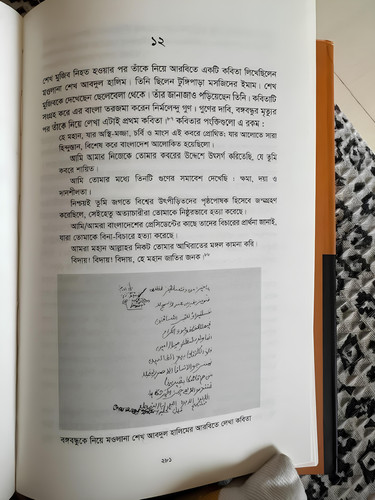 ১২
শেখ মুজিব নিহত হওয়ার পর তাঁকে নিয়ে আরবিতে একটি কবিতা লিখেছিলেন
মওলানা শেখ আবদুল হালিম। তিনি ছিলেন টুঙ্গিপাড়া মসজিদের ইমাম। শেখ
মুজিবকে দেখেছেন ছেলেবেলা থেকে। তাঁর জানাজাও পড়িয়েছেন তিনি। কবিতাটি
সংগ্রহ করে এর বাংলা তরজমা করেন নির্মলেন্দু গুণ। গুণের দাবি, বঙ্গবন্ধুর মৃত্যুর
পর তাঁকে নিয়ে লেখা এটাই প্রথম কবিতা।" কবিতার পংক্তিগুলো এ রকম:
হে মহান, যার অস্থি-মজ্জা, চর্বি ও মাংস এই কবরে প্রোথিত; যার আলোতে সারা
হিন্দুস্তান, বিশেষ করে বাংলাদেশ আলোকিত হয়েছিলো।
আমি আমার নিজেকে তোমার কবরের উদ্দেশে উৎসর্গ করিতেছি, যে তুমি
কবরে শায়িত।
আমি তোমার মধ্যে তিনটি গুণের সমাবেশ দেখেছি : ক্ষমা, দয়া ও
দানশীলতা।
নিশ্চয়ই তুমি জগতে বিশ্বের উৎপীড়িতদের পৃষ্ঠপোষক হিসেবে জন্মগ্রহণ
করেছিলে, সেইহেতু অত্যাচারীরা তোমাকে নিষ্ঠুরভাবে হত্যা করেছে।
আমি/আমরা বাংলাদেশের প্রেসিডেন্টের কাছে তাদের বিচারের প্রার্থনা জানাই,
যারা তোমাকে বিনা-বিচারে হত্যা করেছে।
আমরা মহান আল্লাহর নিকট তোমার আখিরাতের মঙ্গল কামনা করি।
বিদায়! বিদায়! বিদায়, হে মহান জাতির জনক।
বঙ্গবন্ধুকে নিয়ে মওলানা শেখ আবদুল হালিমের আরবিতে লেখা কবিতা
২৮১